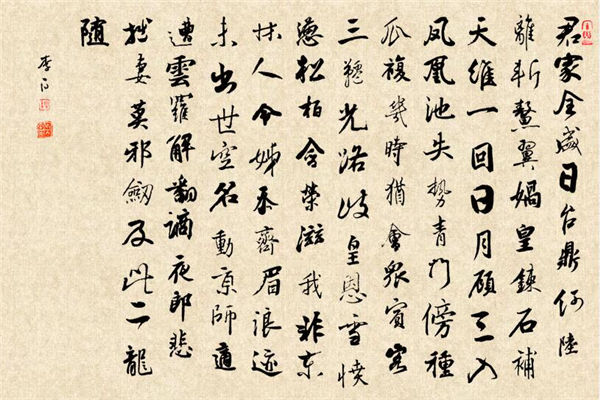 君家全盛日台鼎何陸
離斬鰲翼媧皇鍊石補
天維一回日月顧三入
鳳凰池失勢青門傍種
瓜複幾時猶會衆賓客
三韆光路歧皇恩雪憤
懣松柏含榮滋我非東
牀人令姊忝齊眉浪迹
未出世空名動京師適
遭雲羅解翻謫夜郎悲
拙妻莫邪劍及此二龍
隨
李白